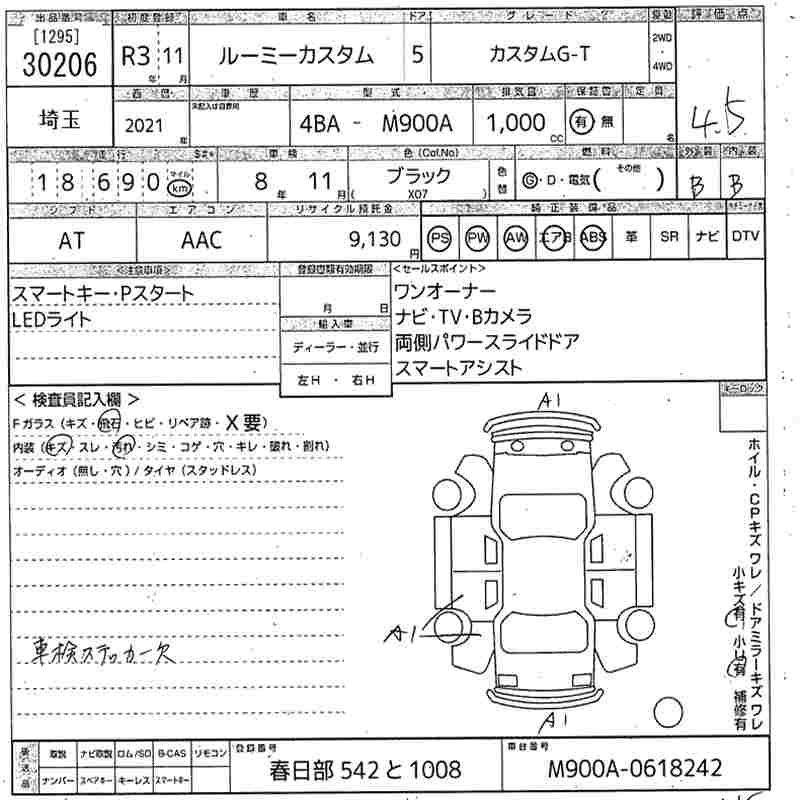 出品番号 初度登録 車名 ドア グレード 駆動 評価点
[1295]
30206 R3年 11月 ルーミーカスタム 5 カスタムG-T 2WD・4WD
埼玉 西暦 車歴 型式 排気量 保証書 定員
2021年 未記入は自家用 4BA - M900A 1,000cc 有 無 名 4.5
走行 车検 色(Col.No) 燃料 外装 内装
18690 マイル km 8年 11月 ブラック (X07) 色替 G・D・電気(その他) B B
シフト エアコン リサイクル預託金 純正装備品
AT AAC 9,130円 PS PW AW エアB ABS 革 SR ナビ DTV
<注意事項> 登録書類有効期限 <セールスポイント>
スマートキー・Pスタート ワンオーナー
LEDライト 月 日 ナビ・TV・Bカメラ
輸入車 両側パワースライドドア
ディーラー・並行 スマートアシスト
左H ・ 右H
< 検査員記入欄 > A1 キーロック
Fガラス (キズ・飛石・ヒビ・リペア跡・X要)
内装 (キズ・スレ・汚れ・シミ・コゲ・穴・キレ・破れ・割れ)
オーディオ (無し・穴) / タイヤ (スタッドレス)
ホイル・CPキズワレ/ドアミラーキズワレ
小キズ有 小凹有 補修有
A1
車検ステッカー欠
A1
返送品 取説 ナビ取説 ロム/SD B-CAS リモコン 登録番号 車台番号
ナンバー スペアキー キーレス スマートキー 春日部 542 と 1008 M900A-0618242